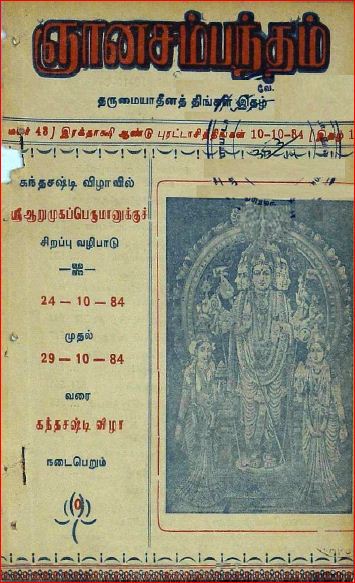 ஞானசம்பந்தம்
தருமையாதீனத் திங்கள் இதழ்
மலர் 43) இரக்தாக்ஷி ஆண்டு புரட்டாசித்திங்கள் 10-10-84 (இதழ் 1
கந்தசஷ்டி விழாவில்
ஸ்ரீ ஆறுமுகப்பெருமானுக்குச்
சிறப்பு வழிபாடு
24 — 10 — 84
முதல்
29 — 10 — 84
வரை
கந்தசஷ்டி விழா
நடைபெறும்